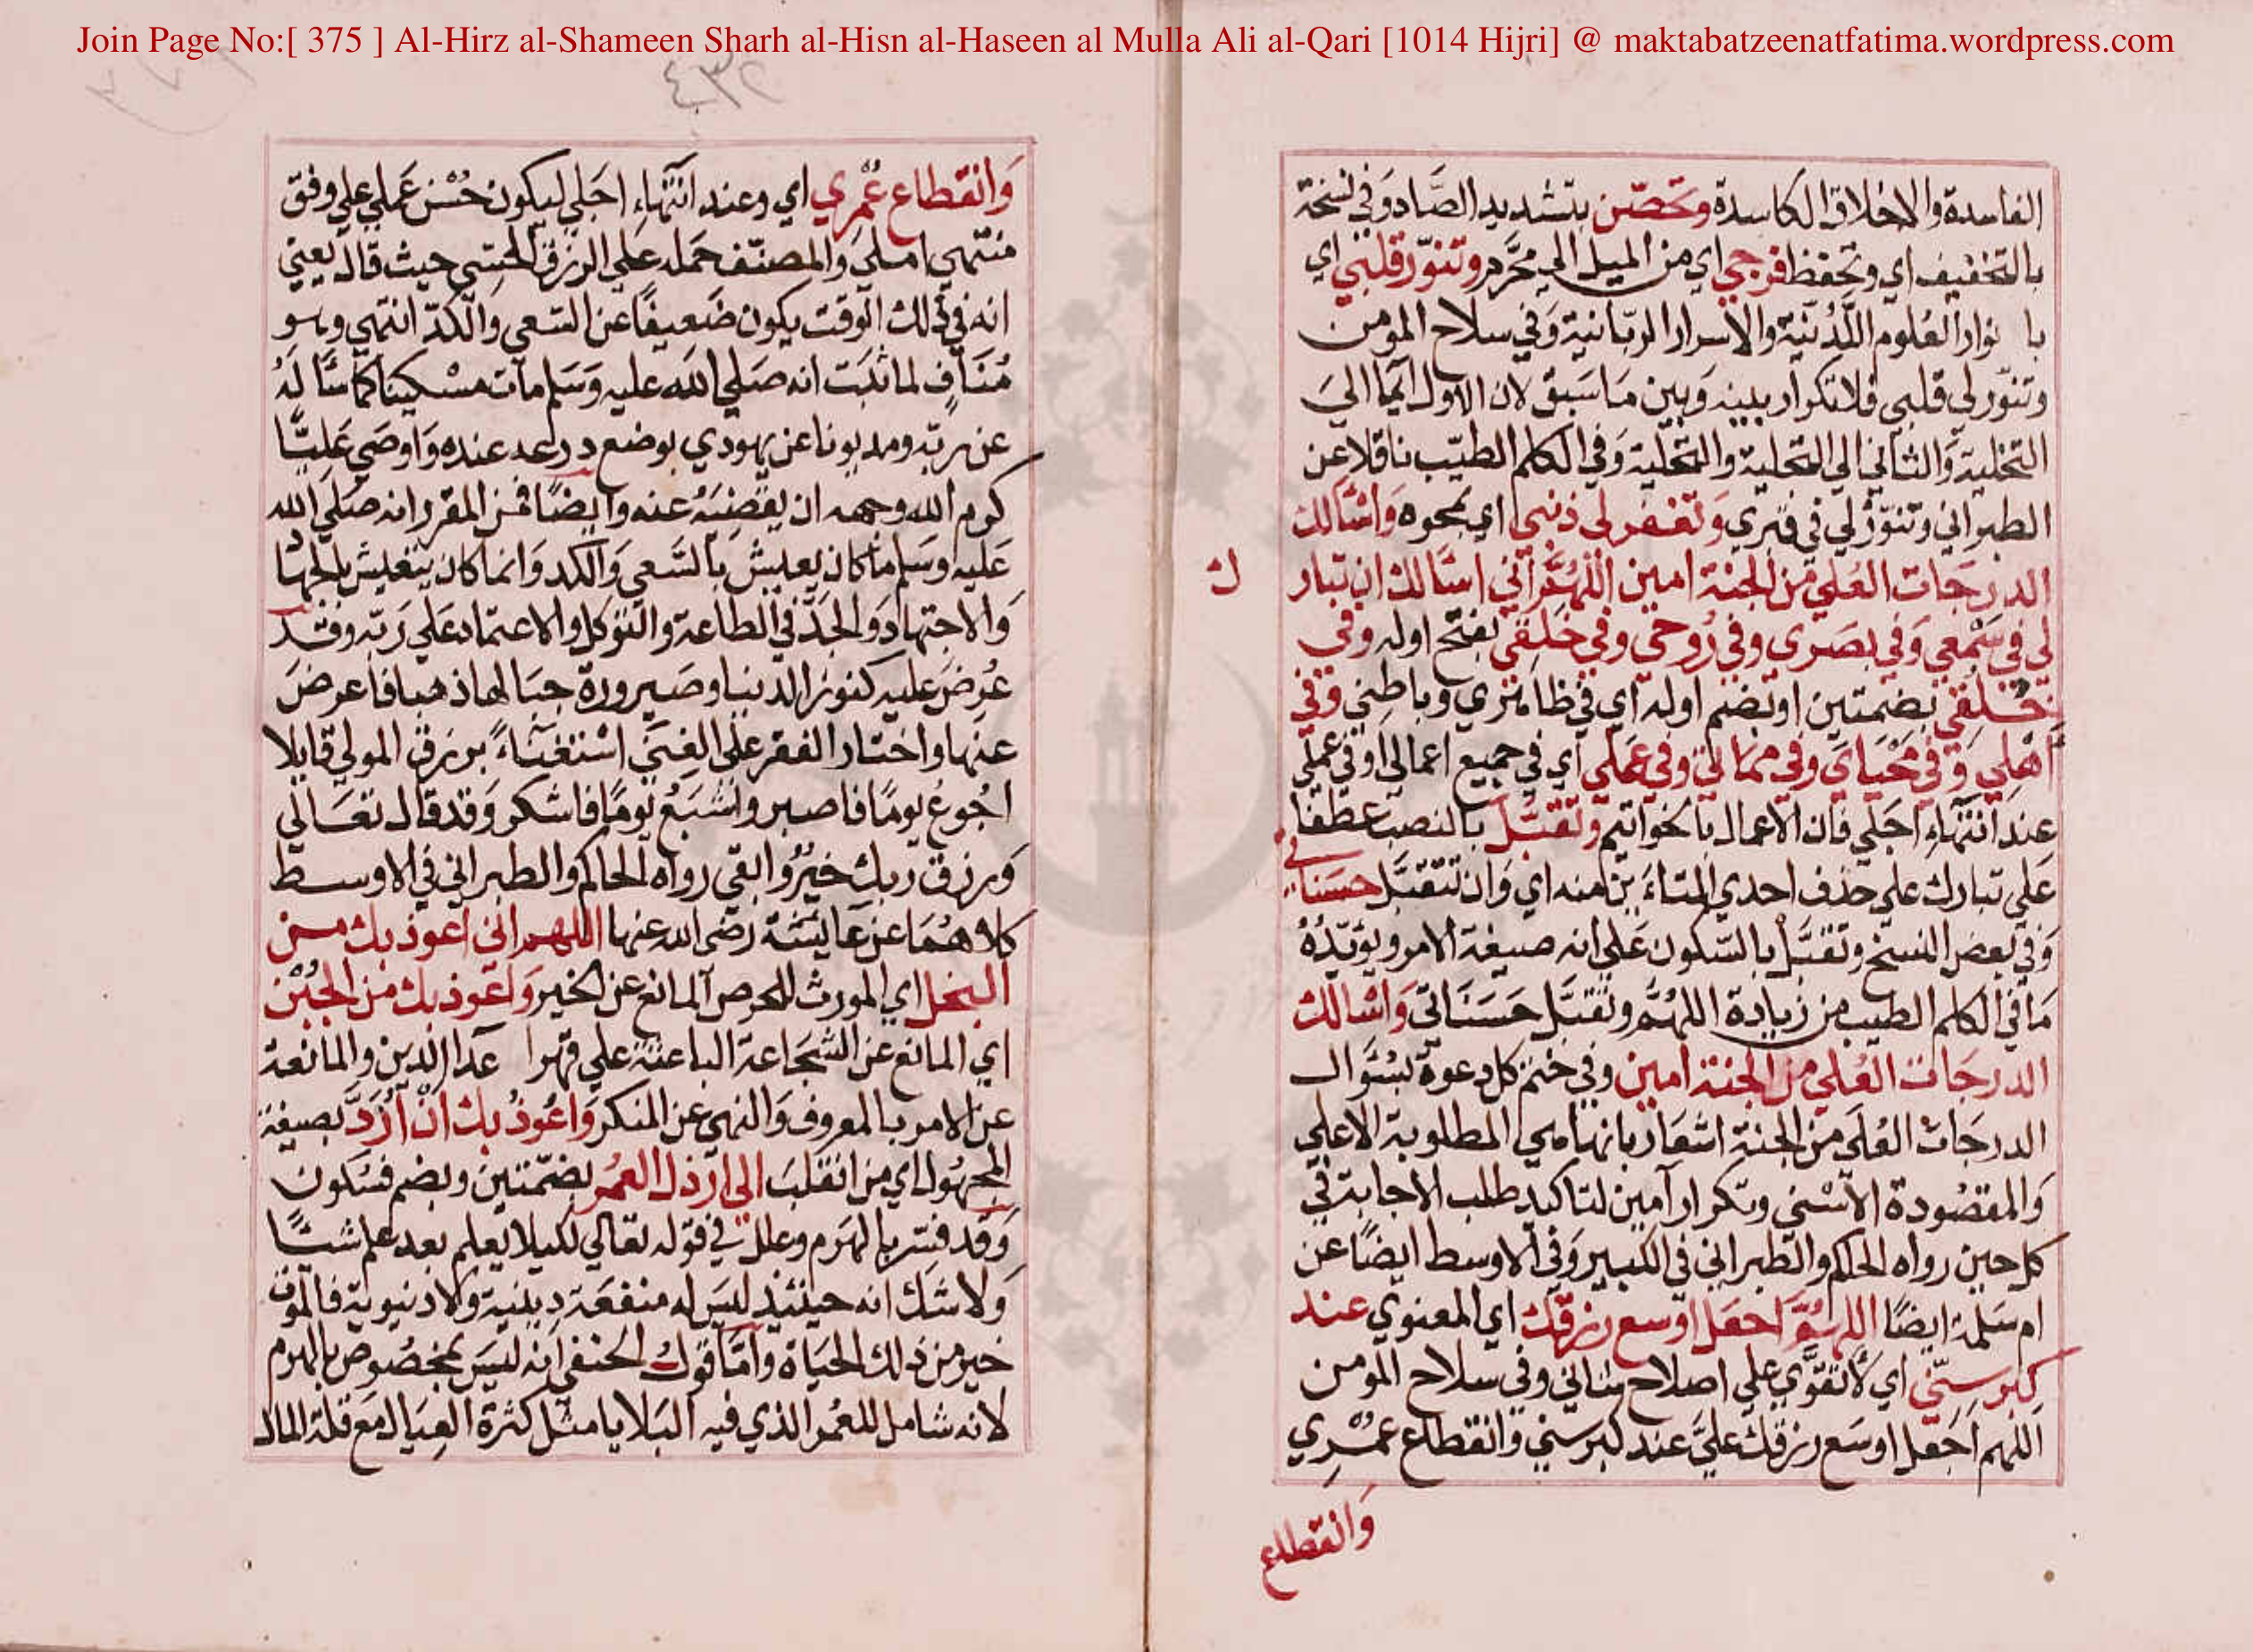 Join Page No:[ 375 ] Al-Hirz al-Shameen Sharh al-Hisn al-Haseen al Mulla Ali al-Qari [1014 Hijri] @ maktabatzeenatfatima.wordpress.com
٤٣٢
الفاسدة والاخلاق الكاسدة وتحصّن بتشديد الصَّاد وَفي نسخة
بالتخفيف اي وتحفظ فرجي اي من الميل الي محرَّم وتنوّر قلبي اي
با نوار العُلوم اللَّدُنيّة والأسرار الربّانية وَفي سلاح المومن
وتنوّر لي قلبي فلا تكرار بينه وَبين مَا سَبق لان الاول ايما الي
التخلية وَالثاني الي التحلية والتجلية وَفي الكلم الطيّب ناقلا عن
الطبراني وتنوّر لي في قبري وَتغفر لي ذنبي اي بمحوه وَاسْألك
الدرَجات العُلي من الجنة امين اللّهُمَّ اني اسألك ان تبار
ك
لي في سَمْعي وَفي بصَري وفي رُوحي وفي خَلقي بفتح اوله وفي
خُلقي بضمتين او بضم اوله اي في ظاهري وباطني وَفي
اَهْلي وَفي مَحْيَايَ وفي مماتي وفي عَملي اي في جميع اعمالي او في عملي
عند انتهاءِ اجَلي فان الاعمال بالخواتيم وَتقبّل بالنصب عطفا
عَلي تبارك علي حذف احدي التاءَين منه اي وَان تتقبّل حسَناتي
وَفي بعض النسخ وتقبّلْ بالسّكون عَلي انه صيغة الامر ويؤيّدُهُ
مَا في الكلم الطيب من زيادة اللهُمَّ وتقبَّل حَسَنَاتي وَاسْالك
الدرجَات العُلي من الجنة امين وفي ختم كل دعوة بسُؤال
الدرجَات العُلَي من الجنة اشعار بانها هي المطلوبة الاعلي
وَالمقصُودة الاَسْني وتكرار آمين لتاكيد طلب الاجابة في
كل حين رواه الحاكم والطبراني في الكبير وَفي الاوسط ايضًا عن
ام سَلمة ايضًا اللهُمَّ اجعَل اوسع رزقك اي المعنوي عند
كبر سِنّي اي لأتقوَّي علي اصلاح شاني وفي سلاح المؤمن
اللهم اجَعل اوسَع رزقك عليَّ عند كبر سني وَانقطاع عمُري
وَانقطاع
وَانقطاع عُمُري اي وعند انتهاءِ اجَلي ليكون حُسْن عَملي علي وفق
منتهي املي وَالمصنّف حَمله علي الرزق الحِسّي حيث قال يعني
انه في ذلك الوَقت يكون ضَعيفًا عن السّعي وَالكدّ انتهي وهو
مُنَافٍ لما ثبَت انه صَلي الله عليه وَسَلم مات مسْكينا كما سَأله
عن ربّه ومديونا عن يهودي بوضع درعه عنده وَاوصَي عَليًّا
كرم الله وجهه ان يقضيَهُ عنه وايضًا فمن المقرر انه صَلي الله
عَليه وسَلم مَا كان يعيش بالسَّعي وَالكد وَانما كان يتعيش بالجهَا
وَالاجتهاد وَالجدّ في الطاعة والتوكل والاعتماد عَلي رَبّه وقد
عُرضَ عليه كنوز الدنيا وصَيرورة جبالها ذهبا فاعرضَ
عنها واختار الفقر علي الغِنَي اسْتغنَاءً برزق المولي قايلا
اجُوع يومًا فاصبر واشبَعُ يَومًا فاشكر وَقد قال تعَالي
وَرزق ربك خيرٌ وابقي رواه الحاكم والطبراني في الاوسط
كلاهُمَا عن عَايشة رَضي الله عنها اللهم اني اعوذ بك من
البخل اي المورث للحرص المانع عن الخير وَاعوذ بك من الجُبْن
اي المانع عن الشجَاعة الباعثة علي قهر اعداالدين والمانعة
عن الامر بالمعروف وَالنهي عن المنكر وَاعُوذُ بك اَنْ اُرَدَّ بصيغة
المجهُول اي من انقلبَ الي ارذل العمُر بضمّتين وبضم فسُكون
وَقد فسّر بالهَرَم وعلل في قوله تعَالي لكيلا يعلم بعد علم شيئًا
وَلا شَك انه حينئذ ليسَ له منفعَة دينية وَلا دنيوية فالموت
خير من ذلك الحيَاة واَمَّا قول الحَنفي انه ليسَ بمخصُوص بالهرم
لانه شامل للعُمر الذي فيه البَلايا مثل كثرة العِيَال مَع قلة المال